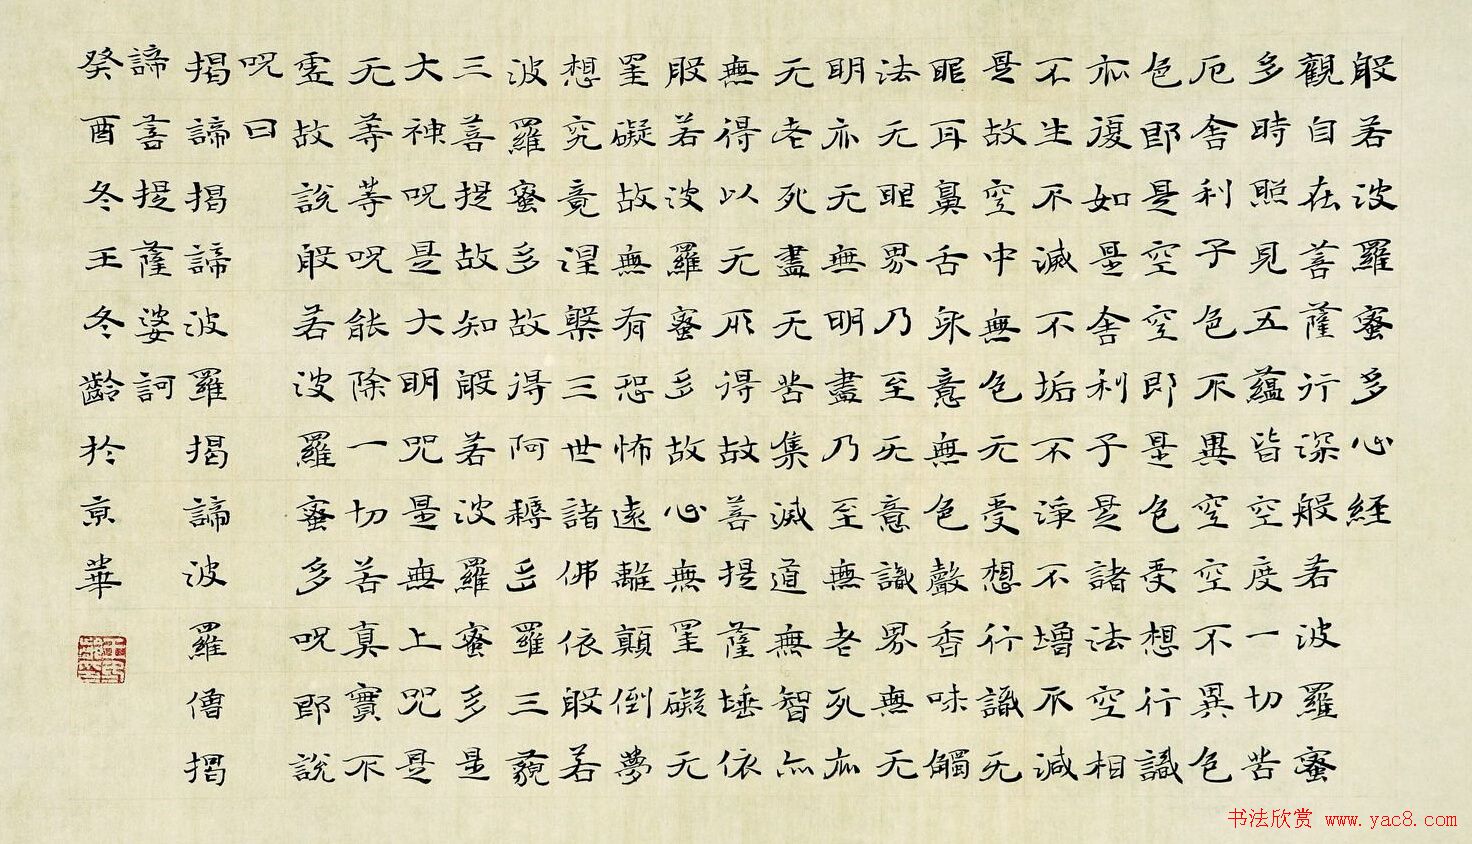 般若波羅蜜多心経
觀自在菩薩行深般若波羅蜜
多時照見五蘊皆空度一切苦
厄舍利子色不異空空不異色
色即是空空即是色受想行識
亦復如是舍利子是諸法空相
不生不滅不垢不淨不增不減
是故空中無色无受想行識无
眼耳鼻舌身意無色聲香味觸
法无眼界乃至无意識界無无
明亦无無明盡乃至無老死亦
无老死盡无苦集滅道無智亦
無得以无所得故菩提薩埵依
般若波羅蜜多故心無罣礙无
罣礙故無有恐怖遠離顛倒夢
想究竟涅槃三世諸佛依般若
波羅蜜多故得阿耨多羅三藐
三菩提故知般若波羅蜜多是
大神咒是大明咒是無上咒是
无等等咒能除一切苦真實不
虛故說般若波羅蜜多咒即說
咒曰
揭諦揭諦波羅揭諦波羅僧揭
諦菩提薩婆訶
癸酉冬王冬齡於京華
书法欣赏 www.yac8.com